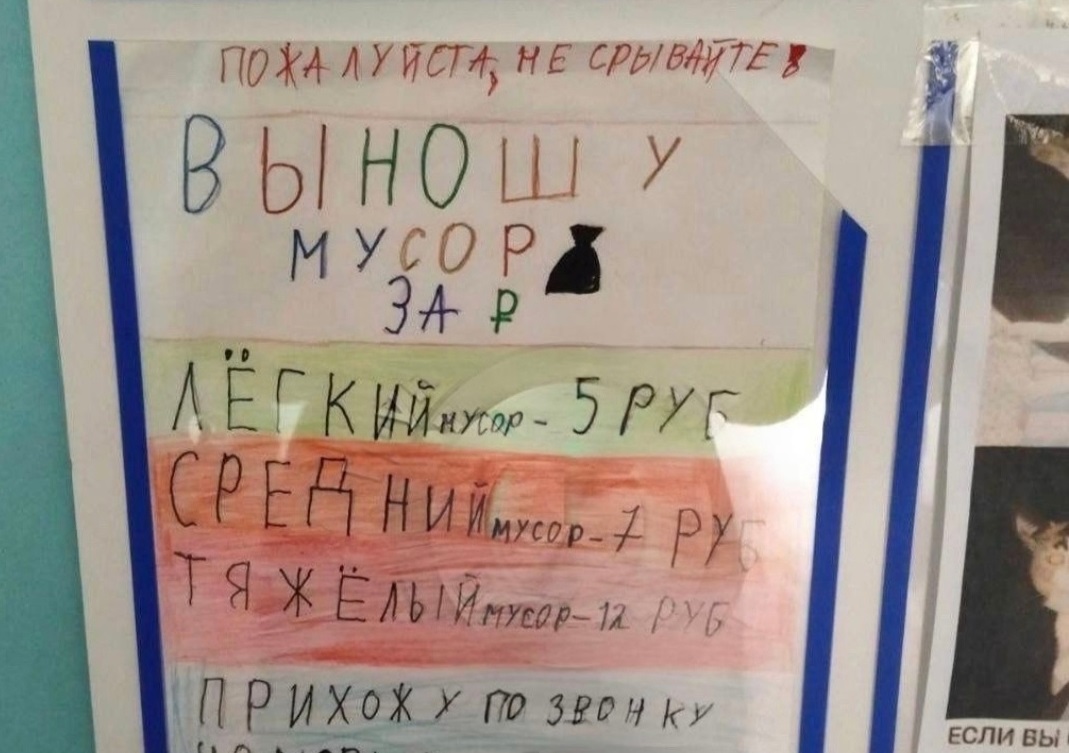 ПОЖАЛУЙСТА, НЕ СРЫВАЙТЕ!
ВЫНОШУ
МУСОР
ЗА ₽
ЛЁГКИЙ мусор - 5 РУБ
СРЕДНИЙ мусор - 7 РУБ
ТЯЖЁЛЫЙ мусор - 12 РУБ
ПРИХОЖУ ПО ЗВОНКУ
ЕСЛИ ВЫ